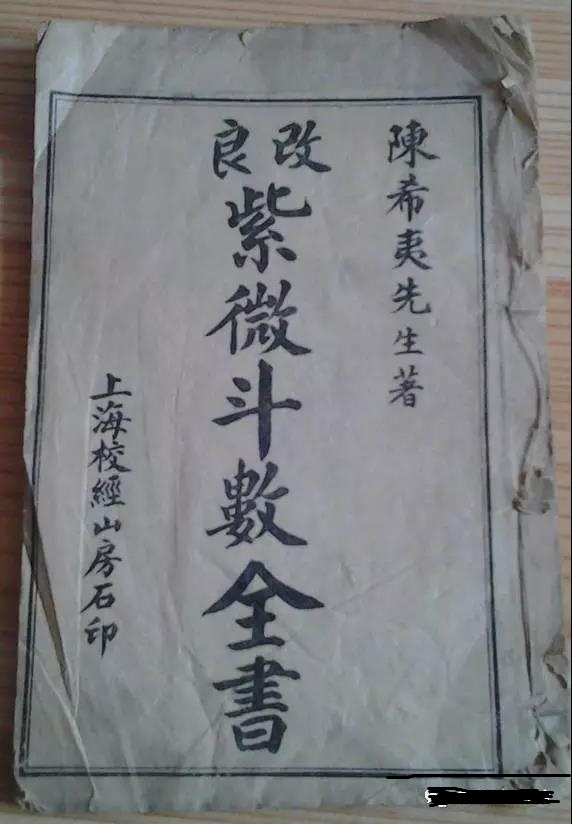 陳希夷先生著
改良
紫微斗數全書
上海校經山房石印